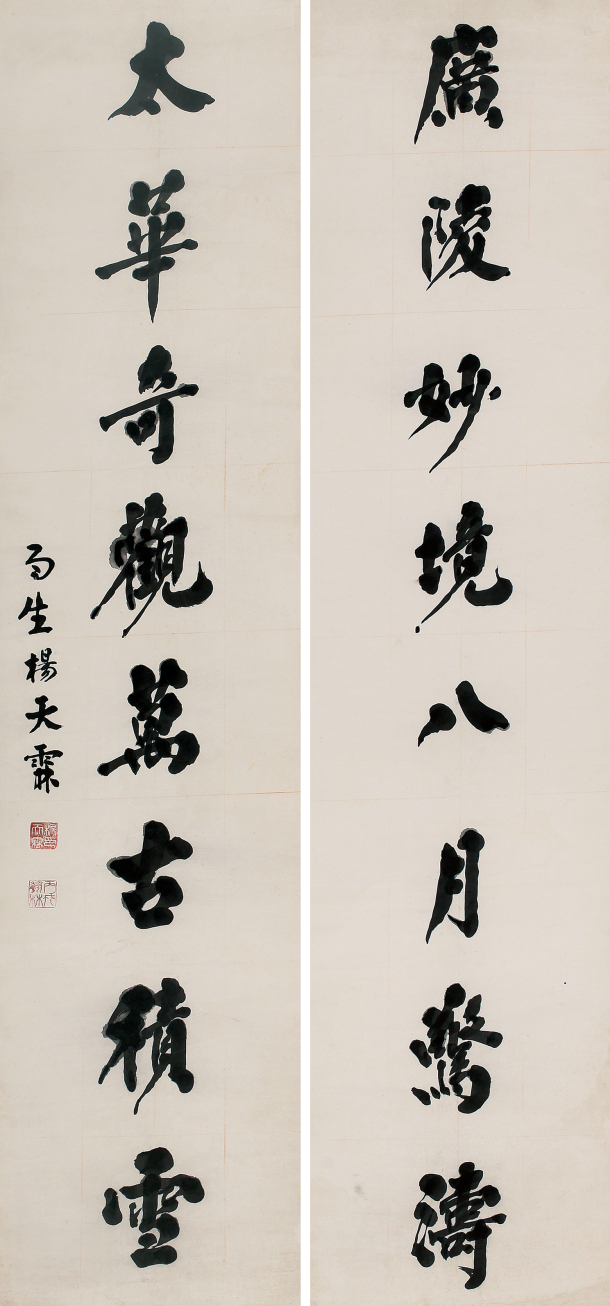 廣陵妙境八月驚濤
太華奇觀萬古積雪
雨生楊天霖